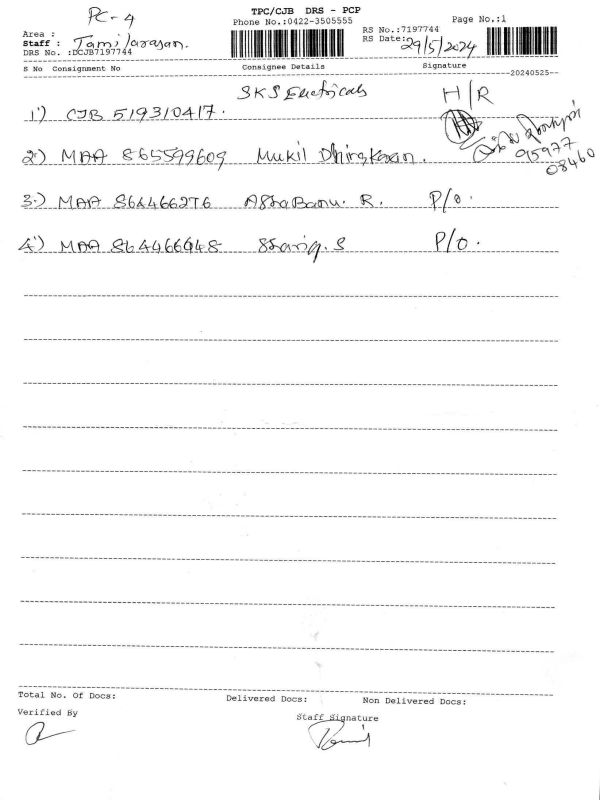 PC-4
TPC/CJB DRS - PCP
Phone No.:0422-3505555
Page No.:1
Area :
Staff : Tamilarasan.
DRS No. :DCJB7197744
RS No.:7197744
RS Date: 29/5/2024
S No Consignment No Consignee Details Signature
--20240525--
1) CJB 519310417. SKS Electricals H/R
95977
08460
2) MAA 865599609 Mukil Dhinakaran.
3) MAA 864466276 AshaBanu. R. P/O.
4) MAA 864466948 Shariq. S P/O.
Total No. Of Docs: Delivered Docs: Non Delivered Docs:
Verified By Staff Signature